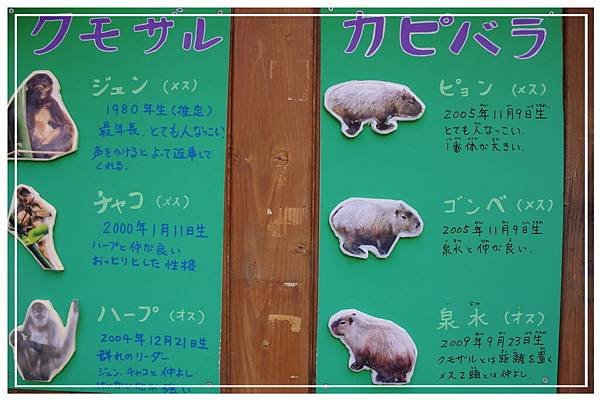 クモザル
ジュン (メス)
1980年生(推定)
最年長、とても人なっこい
声をかけるとよって返事して
くれる。
チャコ (メス)
2000年1月11日生
ハープと仲が良い
おっとりとした性格
ハープ (オス)
2004年12月21日生
群れのリーダー
ジュン、チャコと仲よし
強い
カピバラ
ピョン (メス)
2005年11月9日生
とても人なつこい.
1番体が大きい.
ゴンベ (メス)
2005年11月9日生
泉水と仲が良い.
泉水 (オス)
2009年9月23日生
クモザルとは距離を置く
メス2頭とは仲よし.